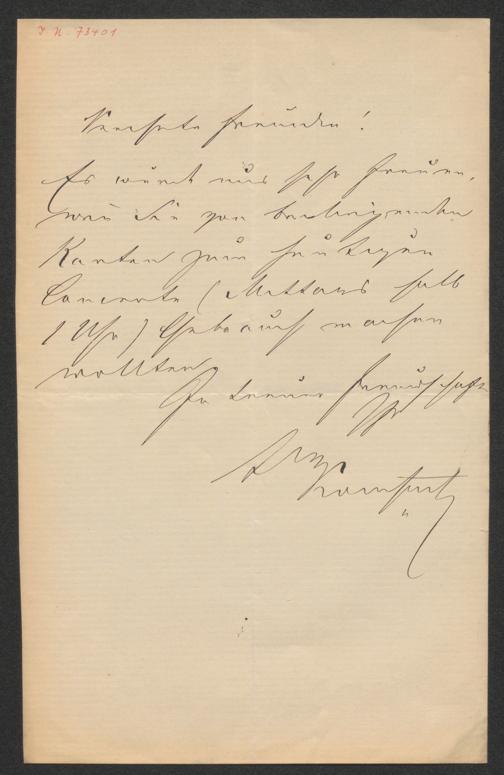 I. N. 73401
Verehrte Freundin!
Es würde mich sehr freuen,
wenn Sie von beiliegenden
Karten zum heutigen
Concerte (Mittags halb
1 Uhr) Gebrauch machen
wollten.
In treuer Freundschaft
Ihr